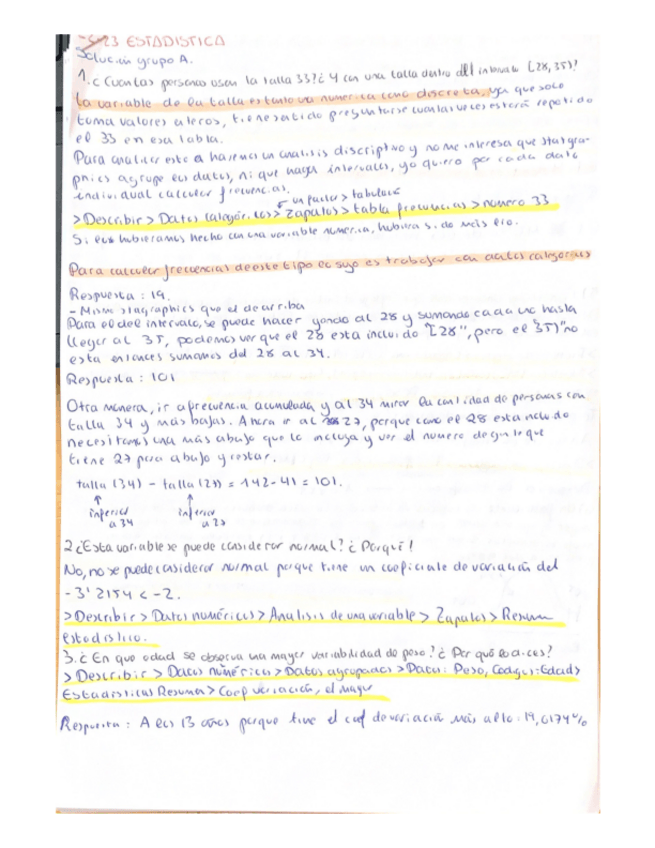 23 ESTADISTICA
Solución grupo A.
1. ¿Cuantas personas usan la talla 33? ¿Y con una talla dentro del intervalo [28,35)?
La variable de la talla es tanto una numerica como discreta, ya que solo
toma valores enteros, tiene sentido preguntarse cuantas veces estará repetido
el 33 en esa tabla.
Para analizar esto a haremos un analisis discriptivo y no me interesa que statgra-
phics agrupe los datos, ni que haga intervalos, yo quiero por cada dato
individual calcular frecuencias.
un factor > tabulacie
> Describir > Datos categóricos > Zapatos > tabla frecuencias > número 33
Si los hubieramos hecho con una variable númerica, hubiera sido más lio.
Para calcular frecuencias de este tipo lo suyo es trabajar con datos categoricos
Respuesta: 19.
- Mismo statgraphics que el de arriba
Para el del intervalo, se puede hacer yendo al 28 y sumando cada uno hasta
llegar al 35, podemos ver que el 28 esta incluido "[28", pero el "35)" no
esta entonces sumamos del 28 al 34.
Respuesta: 101
Otra manera, ir a frecuencia acumulada y al 34 mirar la cantidad de personas con
talla 34 y más bajas. Ahora ir al 27, porque como el 28 esta incluido
necesitamos una más abajo que lo incluya y ver el numero de gente que
tiene 27 para abajo y restar.
talla (34) - talla (27) = 142-41 = 101.
inferior inferior
a 34 a 27
2 ¿Esta variable se puede considerar normal? ¿Porqué?
No, no se puede considerar normal porque tiene un coeficiente de variación del
-3'2154 < -2.
> Describir > Datos numéricos > Analisis de una variable > Zapatos > Resumen
estadistico.
3. ¿En que edad se observa una mayor variabilidad de peso? ¿Por qué lo dices?
> Describir > Datos numéricos > Datos agrupados > Datos: Peso, Codigo: Edad >
Estadisticas Resumen > Coef variación, el mayor
Respuesta: A los 13 años porque tiene el coef de variación más alto: 19,6174%